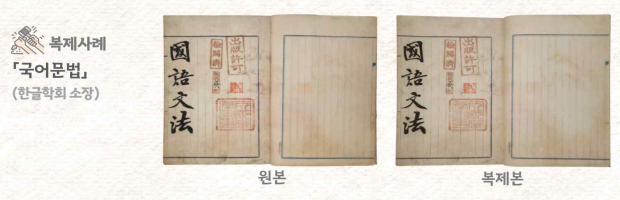 복제사례
「국어문법」
(한글학회 소장)
國語文法
出版許可
원본
國語文法
出版許可
복제본